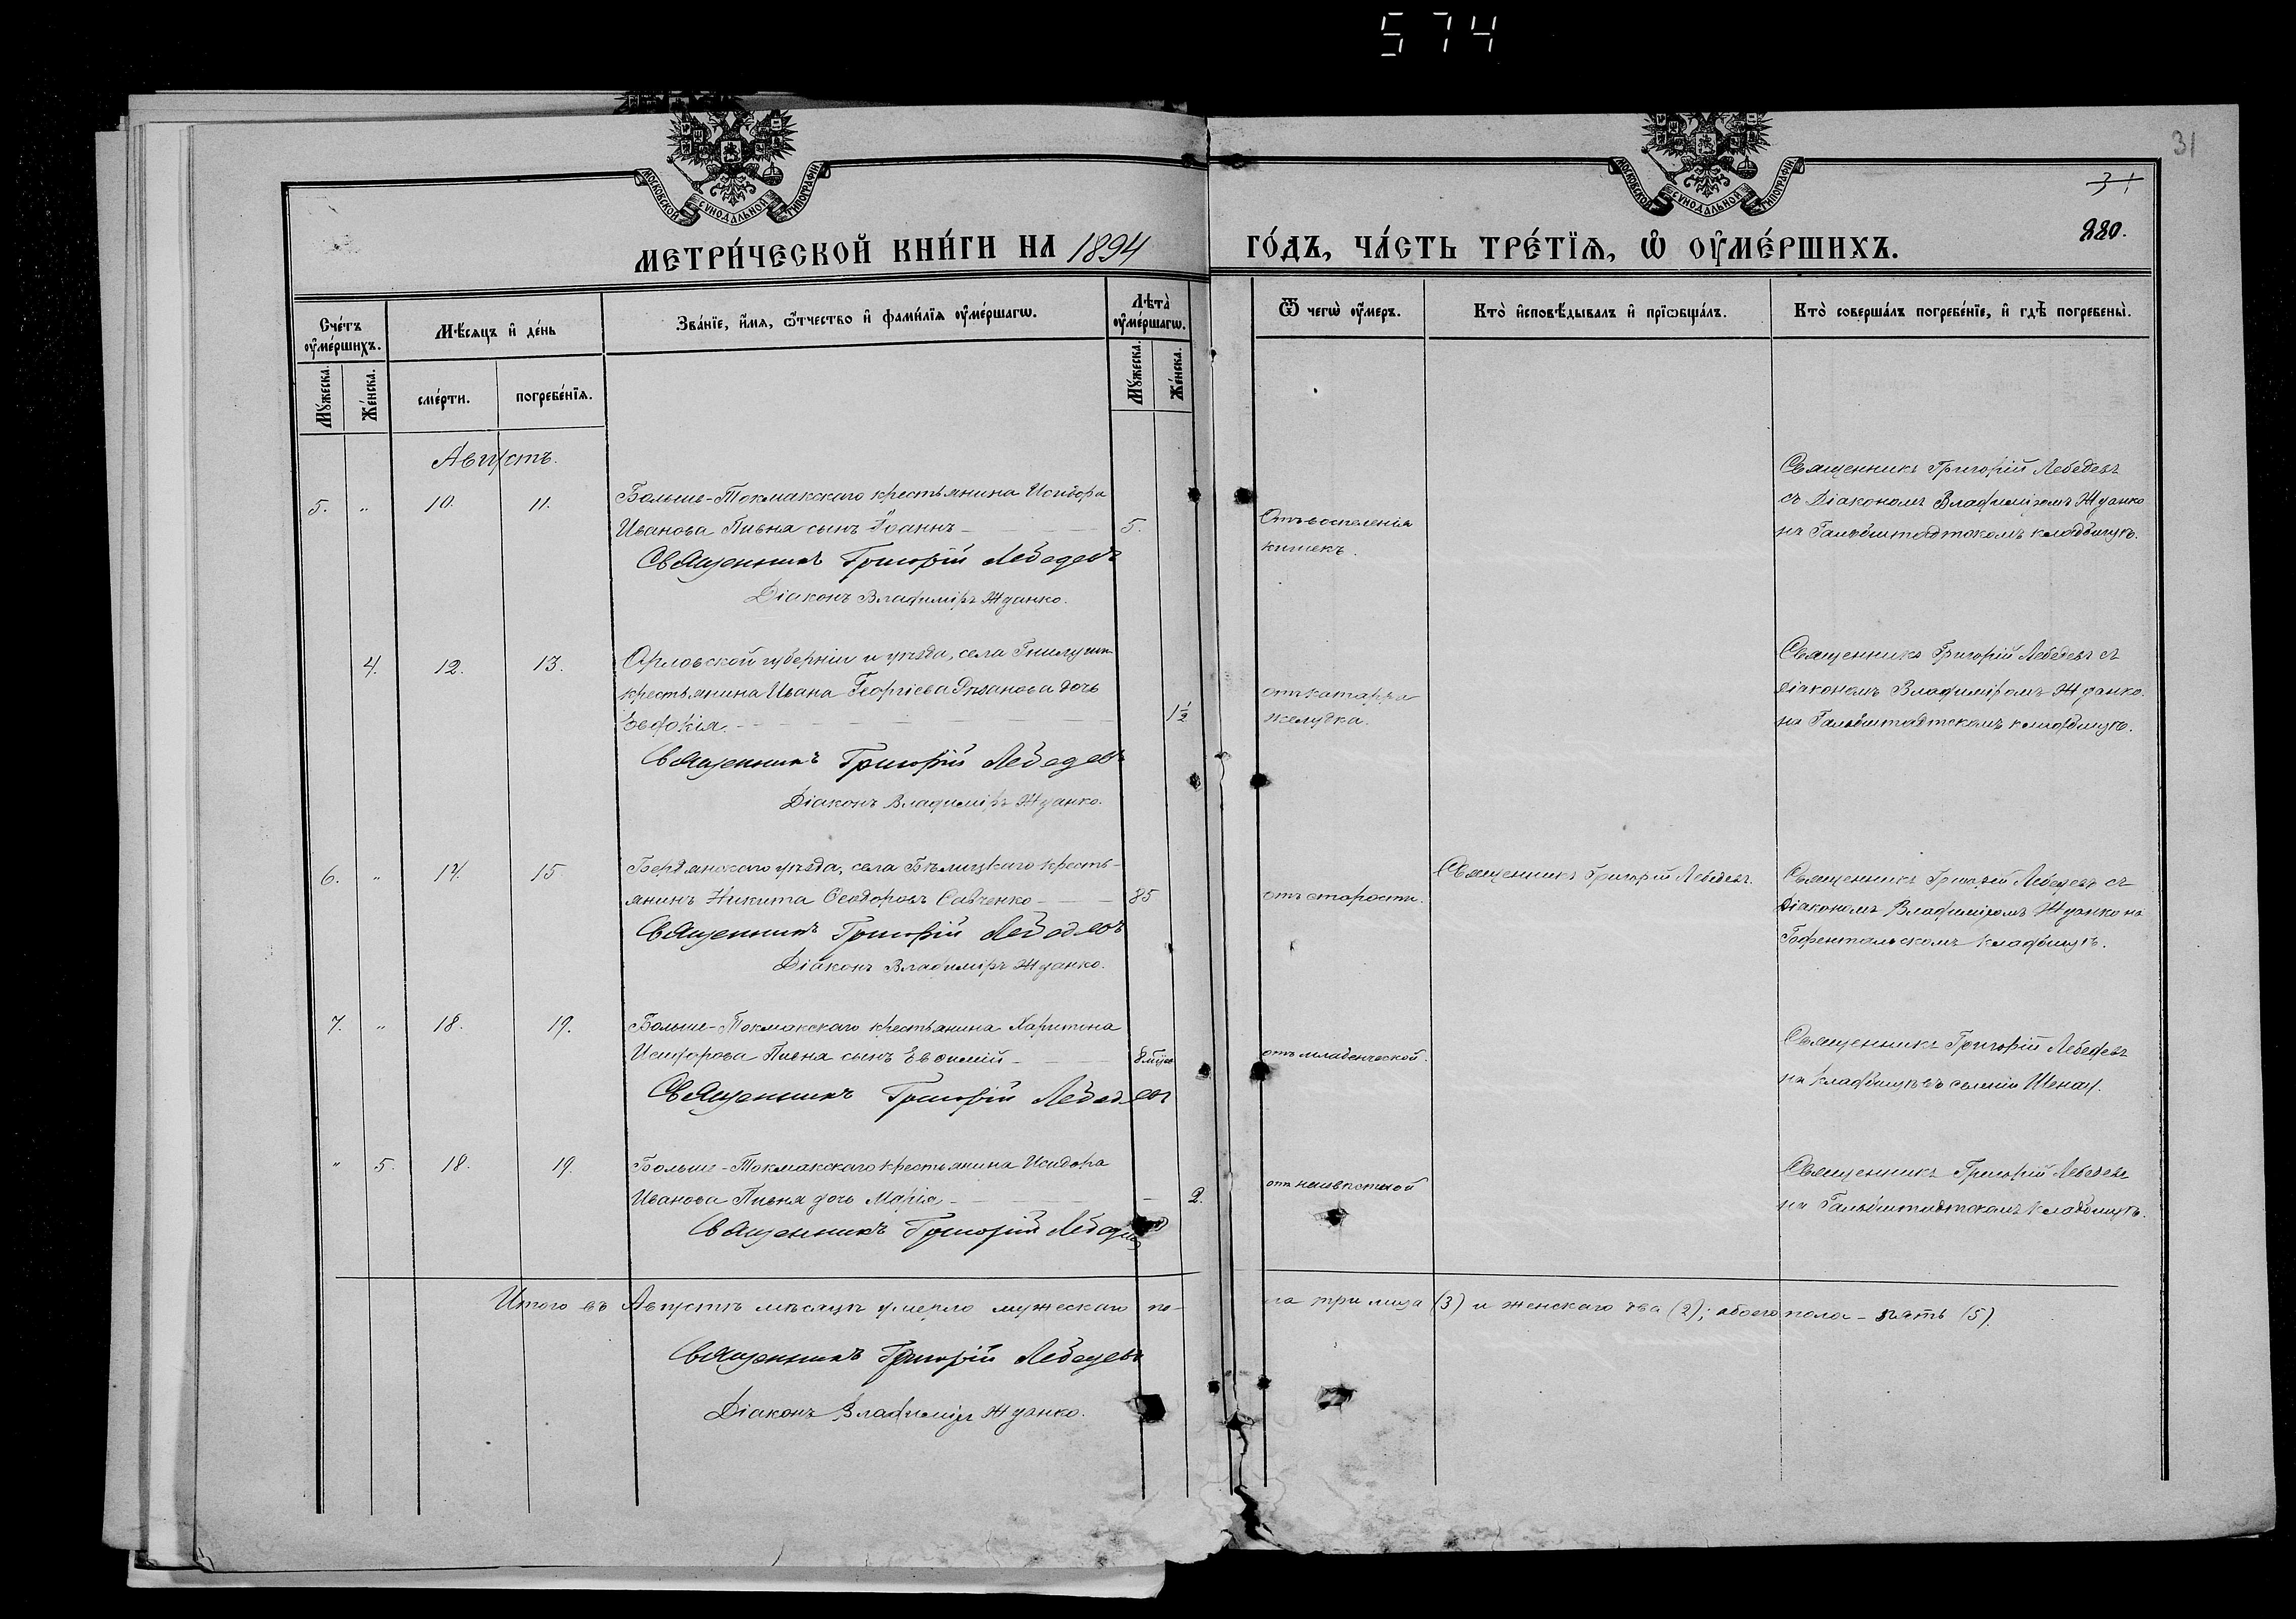 574
31
31
220.
МОСКОВСКОЙ СѴНОДАЛЬНОЙ ТИПОГРАФІИ
МОСКОВСКОЙ СѴНОДАЛЬНОЙ ТИПОГРАФІИ
МЕТРИ́ЧЕСКОЙ КНИ́ГИ НА 1894 ГО́ДЪ, ЧА́СТЬ ТРЕ́ТЇѦ, Ѡ҆ ОУ҆МЕ́РШИХЪ.
Сче́тъ оу҆ме́ршихъ.
Мꙋ́жеска.
Же́нска.
Мѣ́сѧцъ и҆ де́нь
сме́рти.
погребе́нїѧ.
Зва́нїе, и҆́мѧ, ѻ҆́тчество и҆ фами́лїѧ оу҆ме́ршагѡ.
Лѣ́та̀ оу҆ме́ршагѡ.
Мꙋ́жеска.
Же́нска.
Ѿ чегѡ̀ оу҆́меръ.
Кто̀ и҆сповѣ́дывалъ и҆ прїѡбща́лъ.
Кто̀ соверша́лъ погребе́нїе, и҆ гдѣ̀ погребены̀.
Августъ.
5. " 10. 11. Больше-Токмакскаго крестьянина Исидора
Иванова Пивня сынъ Іоаннъ - 5.
Священникъ Григорій Лебедевъ
Діаконъ Владиміръ Жданко.
Отъ воспеленія
кишекъ.
Священникъ Григорій Лебедевъ
съ Діакономъ Владиміромъ Жданко
на Гальбштадтскомъ кладбищѣ.
4. 12. 13. Орловской губерніи и уѣзда, села
крестьянина Ивана Георгіева Рѣзанова дочь
Евдокія. - 1½
Священникъ Григорій Лебедевъ
Діаконъ Владиміръ Жданко.
отъ катарра
желудка.
Священникъ Григорій Лебедевъ съ
Діакономъ Владиміромъ Жданко.
на Гальбштадтскомъ кладбищѣ.
6. " 14. 15 Бердянскаго уѣзда, села Бѣлицкаго кресть-
янинъ Никита Ѳеодоровъ Савченко - 85
Священникъ Григорій Лебедевъ
Діаконъ Владиміръ Жданко.
отъ старости.
Священникъ Григорій Лебедевъ.
Священникъ Григорій Лебедевъ съ
Діакономъ Владиміромъ Жданко на
Тифентальскомъ кладбищѣ.
7. " 18. 19. Больше-Токмакскаго крестьянина Харитона
Исидорова Пивня сынъ Евѳимій - 8 мѣсс
Священникъ Григорій Лебедевъ
отъ младенческой.
Священникъ Григорій Лебедевъ
на кладбищѣ въ селеніи Шенау.
" 5. 18. 19. Больше-Токмакскаго крестьянина Исидора
Иванова Пивня дочь Марія - 2.
Священникъ Григорій Лебедевъ
отъ неизвѣстной
Священникъ Григорій Лебедевъ
на Гальбштадтскомъ кладбищѣ.
Итого въ Августѣ мѣсяцѣ умерло мужескаго по-
ла три лица (3) и женскаго два (2); обоего пола - пять (5).
Священникъ Григорій Лебедевъ
Діаконъ Владиміръ Жданко.